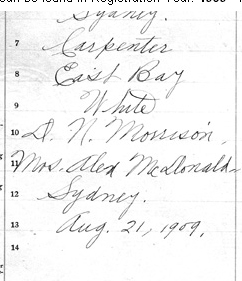 can be found in Registration Year:
Sydney.
7 Carpenter
8 East Bay
9 White
10 D. N. Morrison,
11 Mrs. Alex McDonald
12 Sydney.
13 Aug. 21, 1909.
14